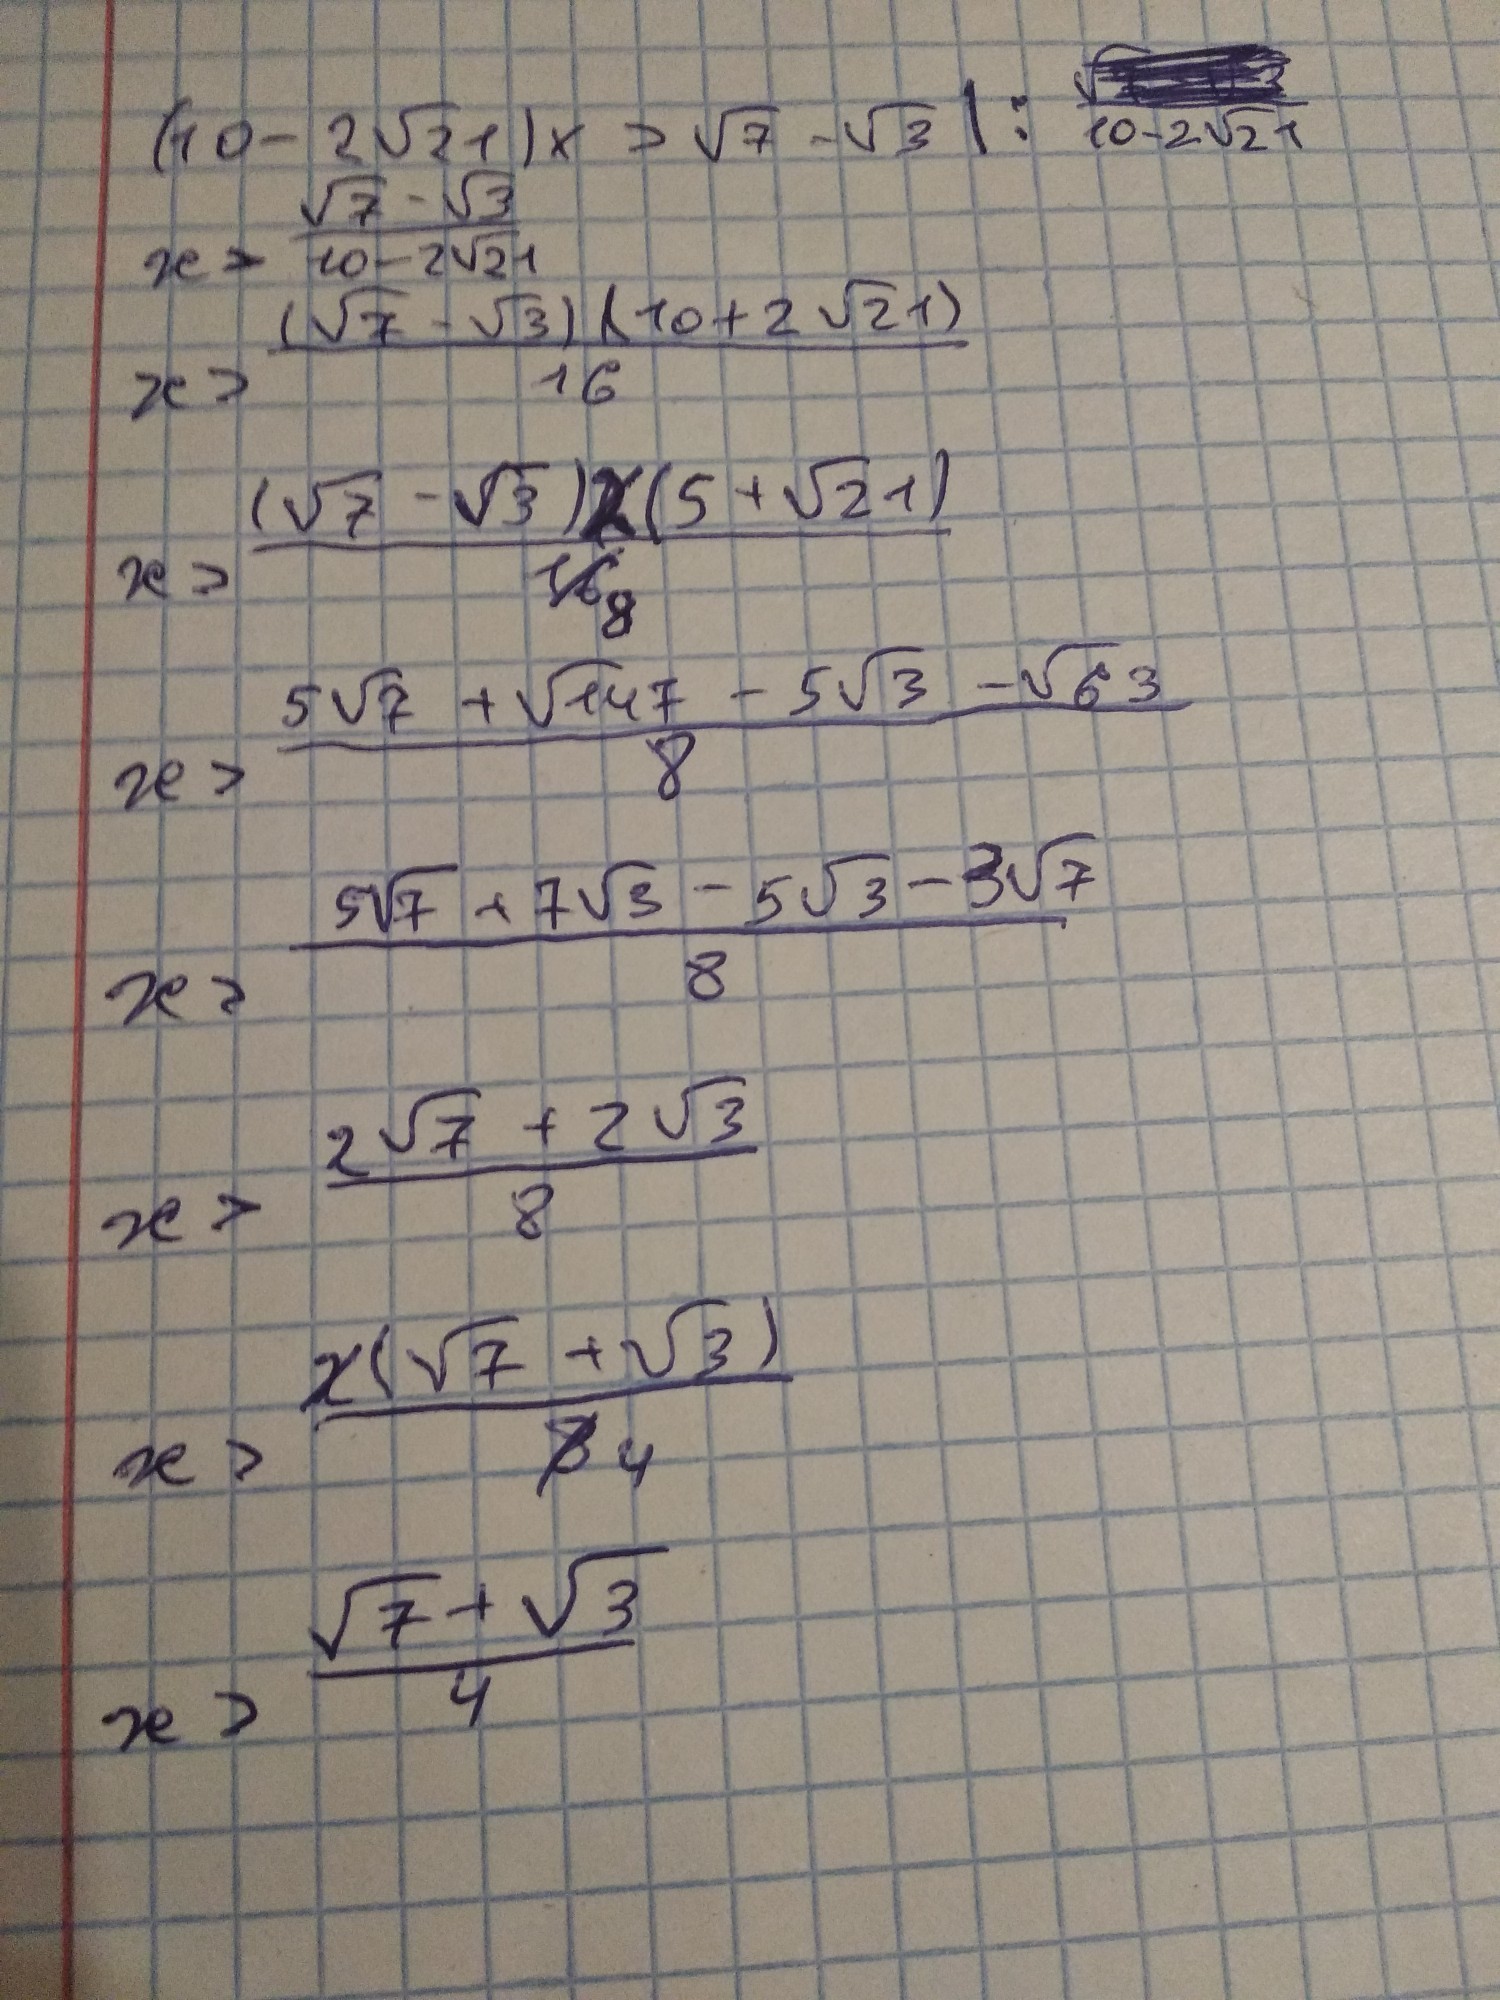 (10 - 2√21)x > √7 - √3 | : 10-2√21
x > (√7 - √3)/(10 - 2√21)
x > ((√7 - √3)(10 + 2√21))/16
x > ((√7 - √3)2(5 + √21))/16 8
x > (5√7 + √147 - 5√3 - √63)/8
x > (5√7 + 7√3 - 5√3 - 3√7)/8
x > (2√7 + 2√3)/8
x > (2(√7 + √3))/8 4
x > (√7 + √3)/4